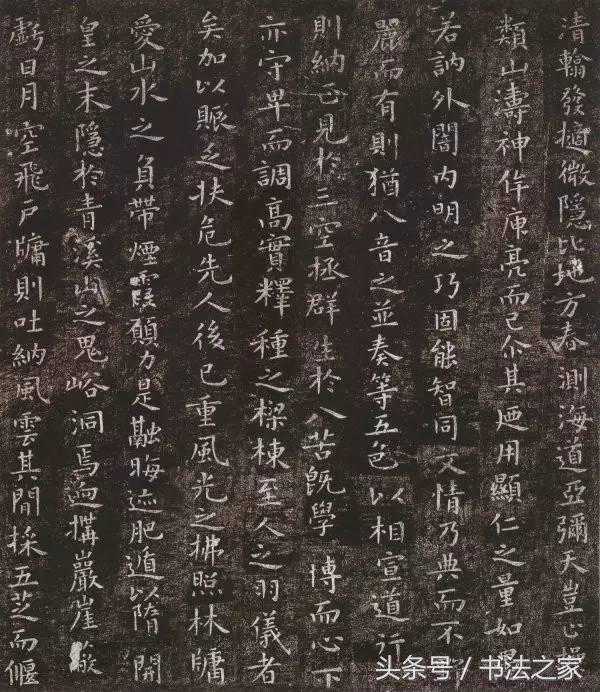 清翰發擿微隱比地方春測海道亞彌天豈止操
類山濤神侔庾亮而已尒其廼用顯仁之量如
若訥外闇內明之巧固能智同文情乃典而不
麗而有則猶八音之並奏等五色以相宣道行
則納正見於三空拯群生於八苦旣學博而心下
亦守卑而調高實釋種之樑棟至人之羽儀者
矣加以賑乏扶危先人後已重風光之拂照林牖
愛山水之負帶煙霞願力是融晦迹肥遁以隋開
皇之末隱於青溪山之鬼峪洞焉迺搆巖崖
虧日月空飛戶牖則吐納風雲其閒採五芝而偃
头条号 / 书法之家